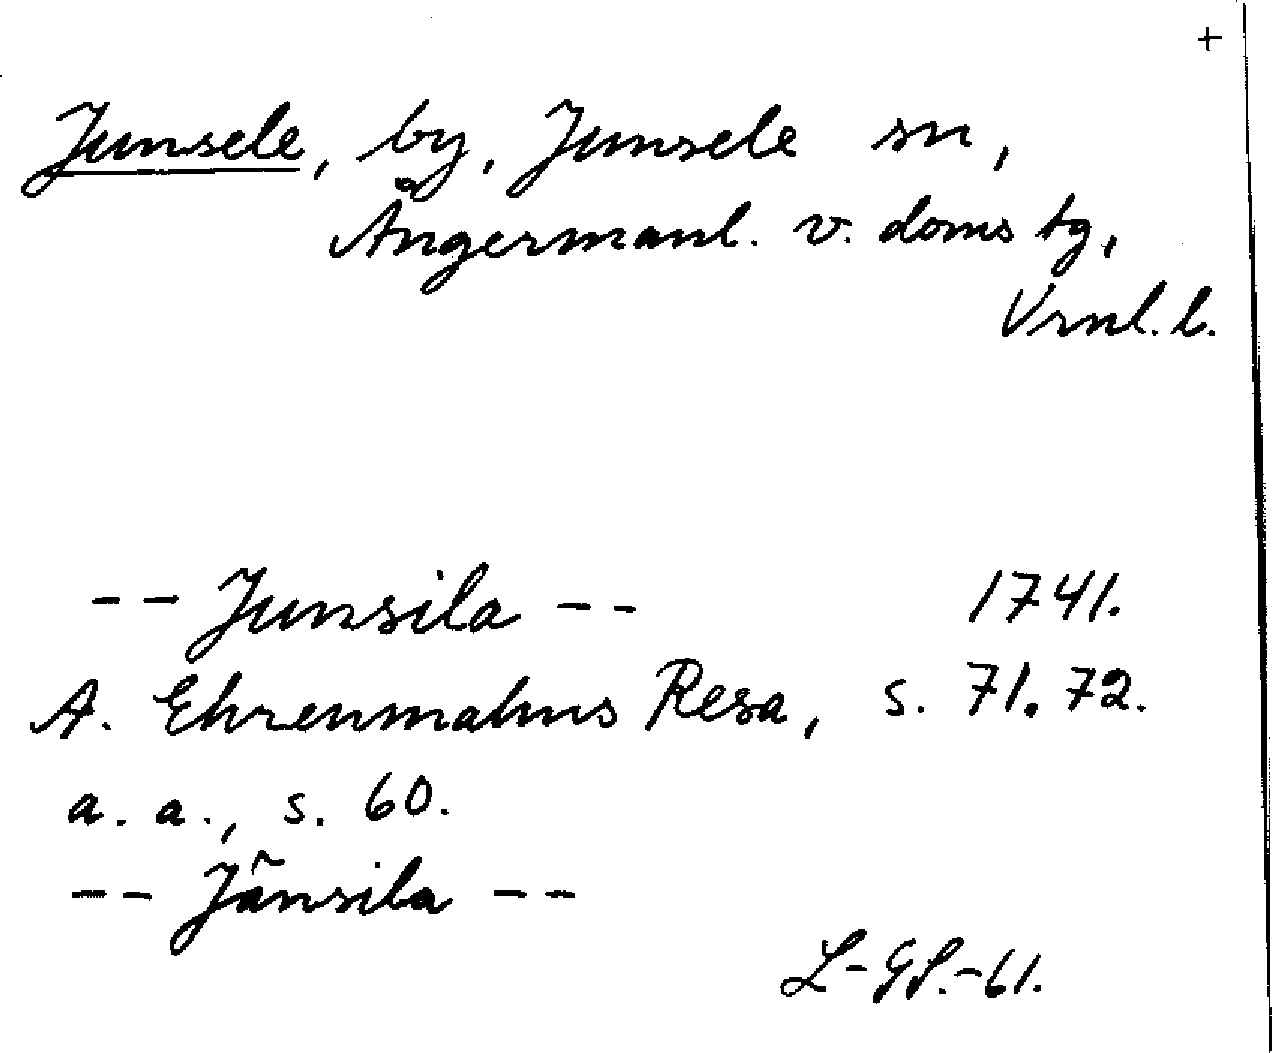 +
Junsele, by, Junsele sn,
Ångermanl. v. doms tg,
Vrnl. l.
-- Junsila -- 1741.
A. Ehrenmalms Resa, s. 71. 72.
a. a., s. 60.
-- Jãnsila --
L-GS.-61.